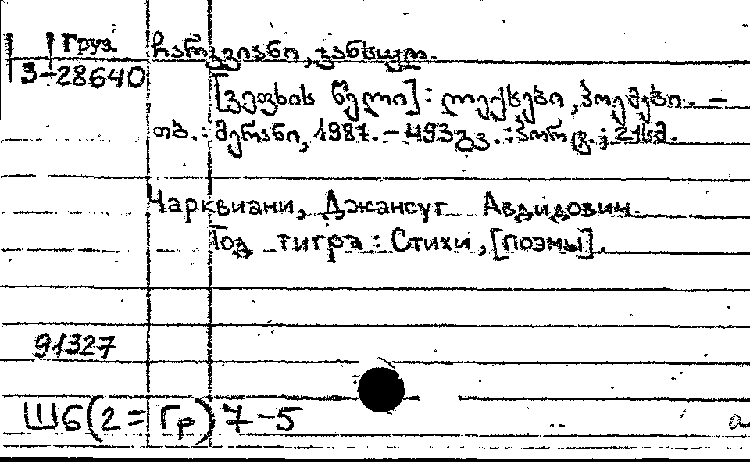 Груз
ჩარკვიანი, ჯანსუღ.
3-28640
[ვეფხის წელი] : ლექსები, პოემები. –
თბ. : მერანი, 1987. – 493გვ. : პორტ. ; 21სმ.
Чарквиани, Джансуг Авдидович.
Год тигра : Стихи, [поэмы].
91327
Ш6(2=Гр)7-5
a